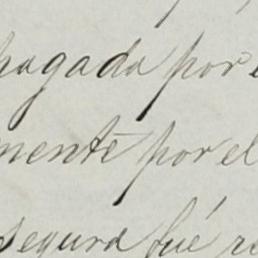 pagada por e
mente por el
segura fué re